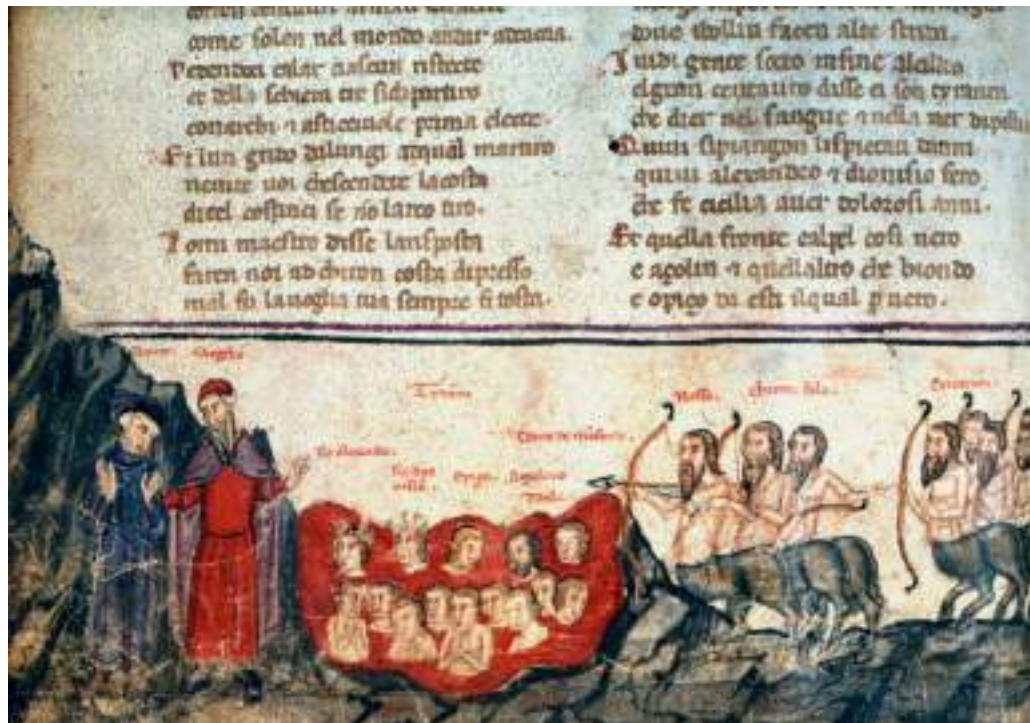 corien centauri armati di saette
come solen nel mondo andar a caccia.
Vedendoci calar ciascun ristette
et della schiera tre si dipartiro
con archi ⁊ asticciuole prima elette.
Et lun grido da lungi a qual martiro
venite voi che scendete la costa
ditel costinci se no larco tiro.
Lo mi maestro disse la risposta
farem noi ad chiron costa di presso
mal fu la voglia tua sempre si tosta.
alte strida.
I vidi gente sotto infino al ciglio
el gran centauro disse ei son tyranni
che dier nel sangue ⁊ nella aver di piglio
Quivi si piangon li spietati danni
quivi alexandro ⁊ dionisio fero
che fe cicilia aver dolorosi anni.
Et quella fronte cal pel cosi nero
e açolin ⁊ quellaltro che biondo
e opiço da esti il qual p vero.
Virgilio
Tyranni
Nesso.
chiron. folo.
Centauri.